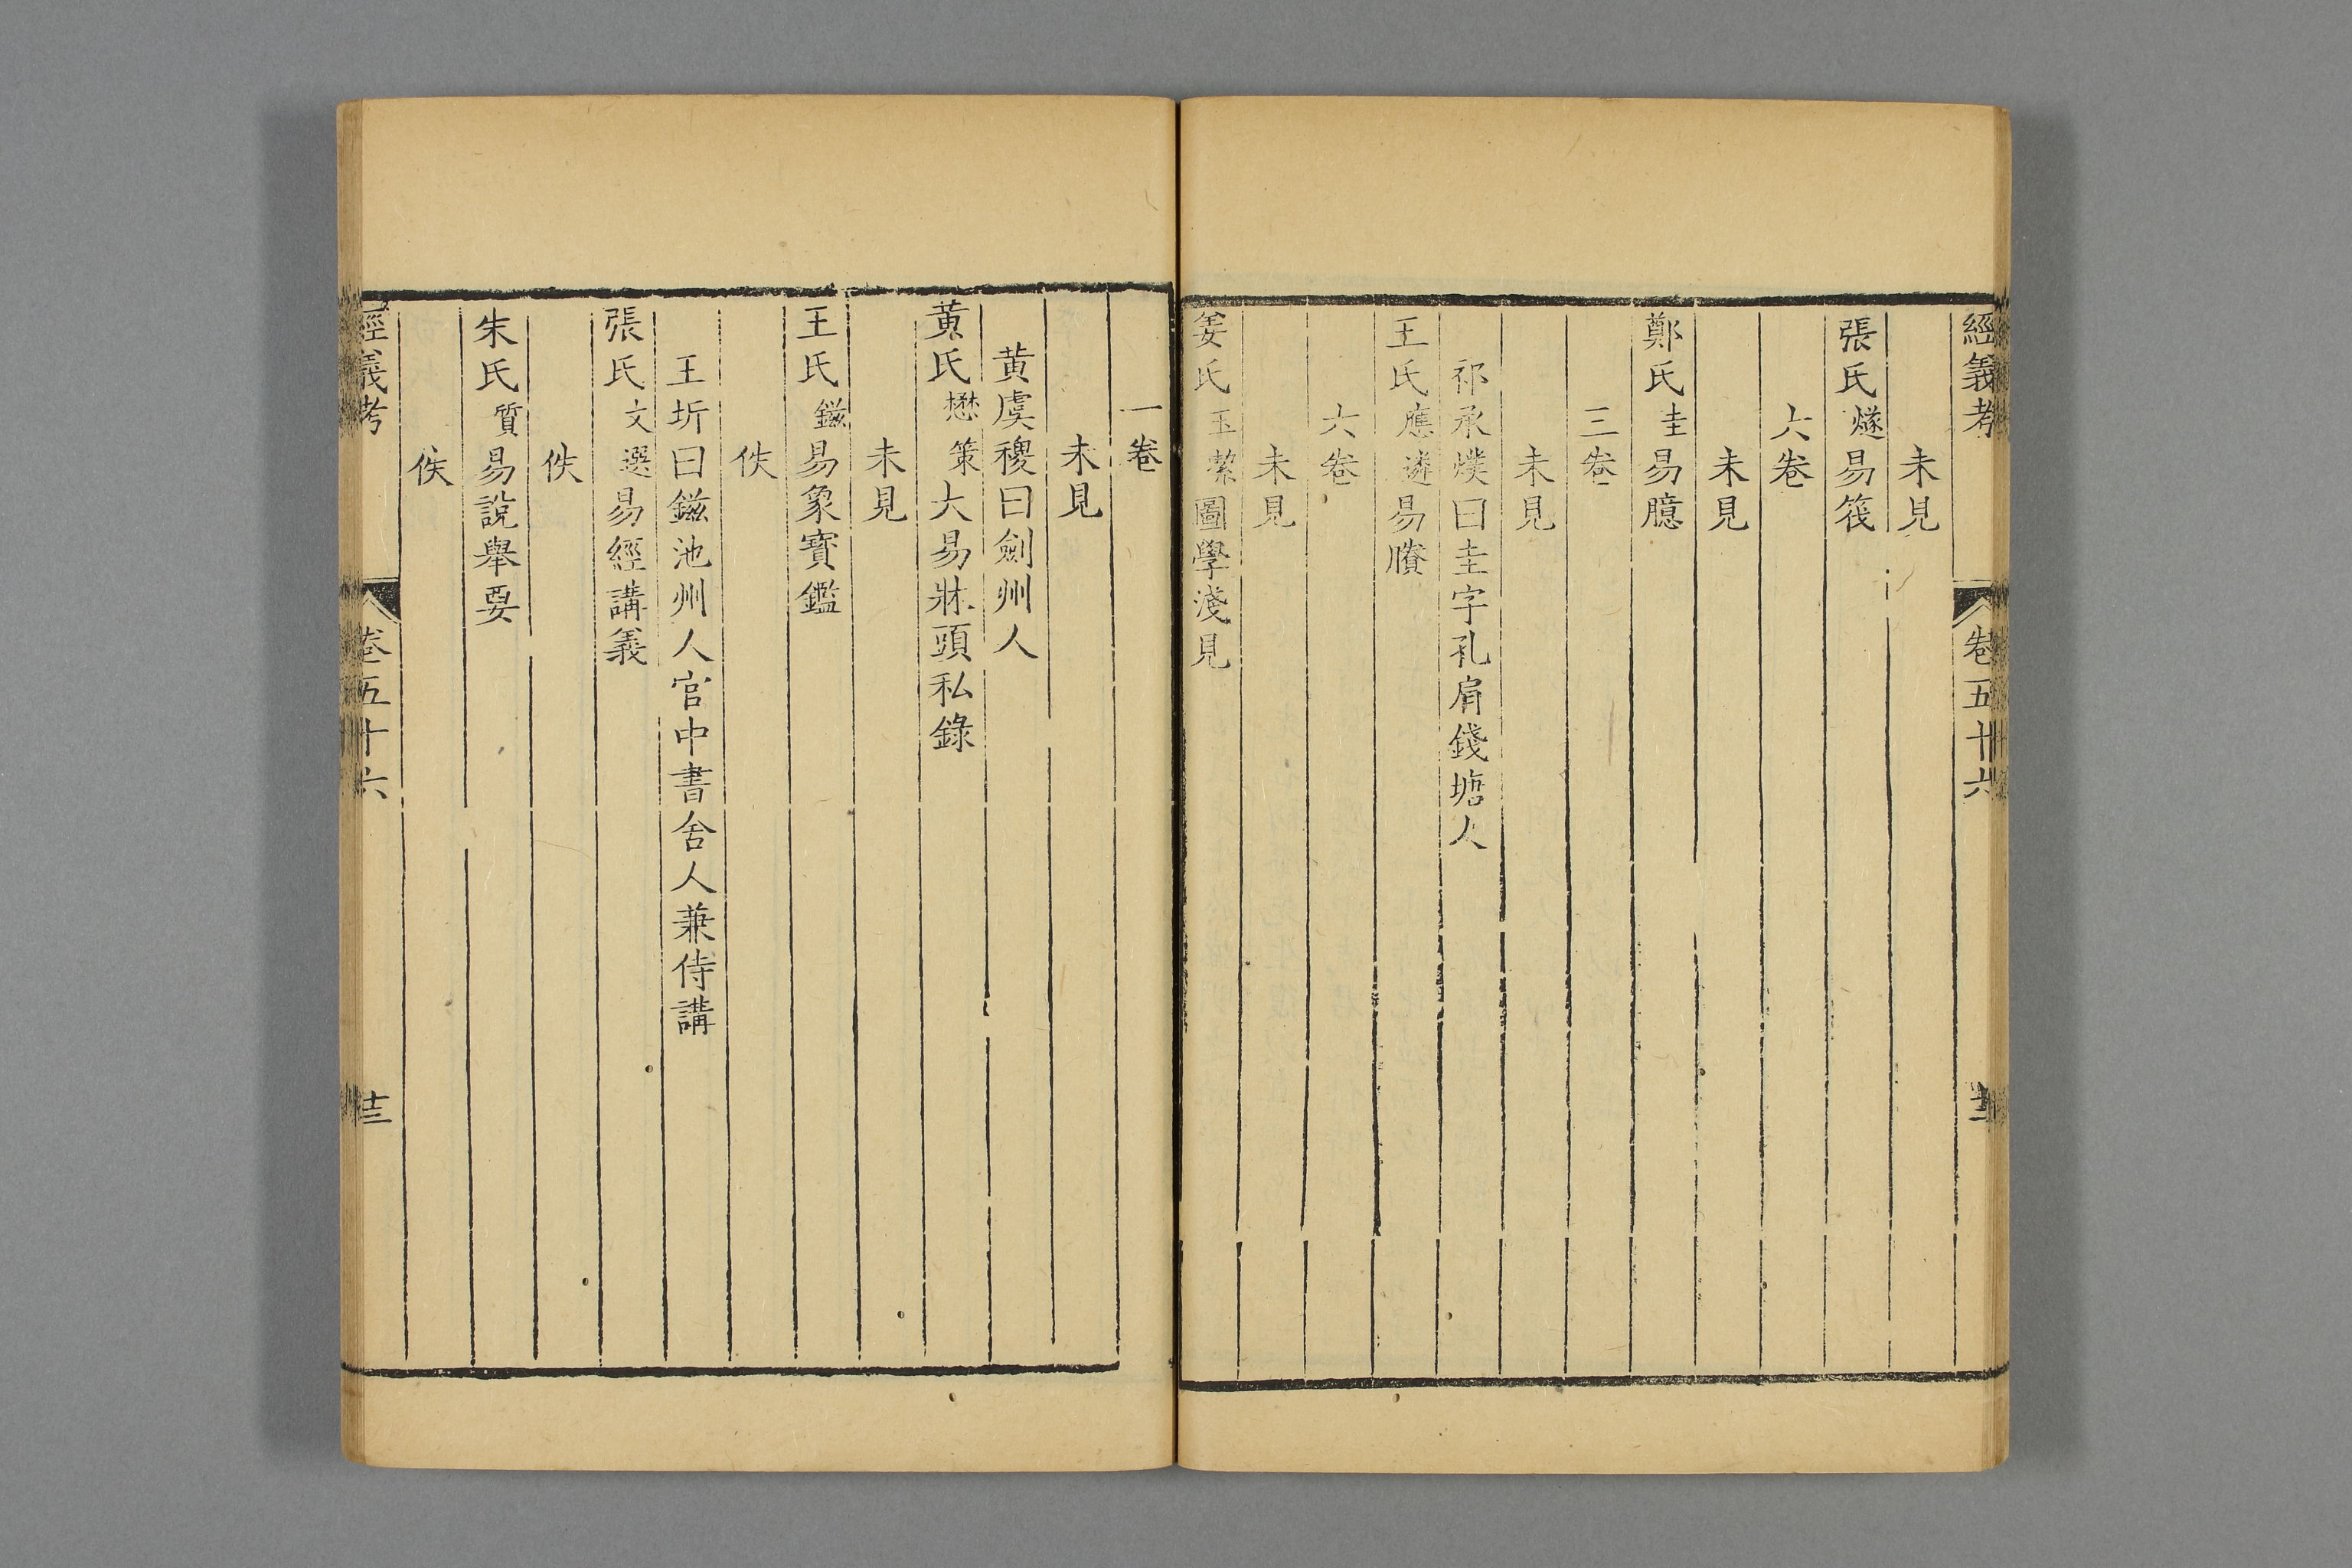 經義考
卷五十六
未見
張氏燧易筏
六卷
未見
鄭氏圭易臆
三卷
未見
祁承㸁曰圭字孔肩錢塘人
王氏應遴易賸
六卷
未見
姜氏玉㓗圖學淺見
一卷
未見
黃虞稷曰劍州人
黃氏懋策大易牀頭私錄
未見
王氏鎡易象寶鑑
佚
王圻曰鎡池州人官中書舍人兼侍講
張氏文選易經講義
佚
朱氏質易說舉要
佚
經義考
卷五十六